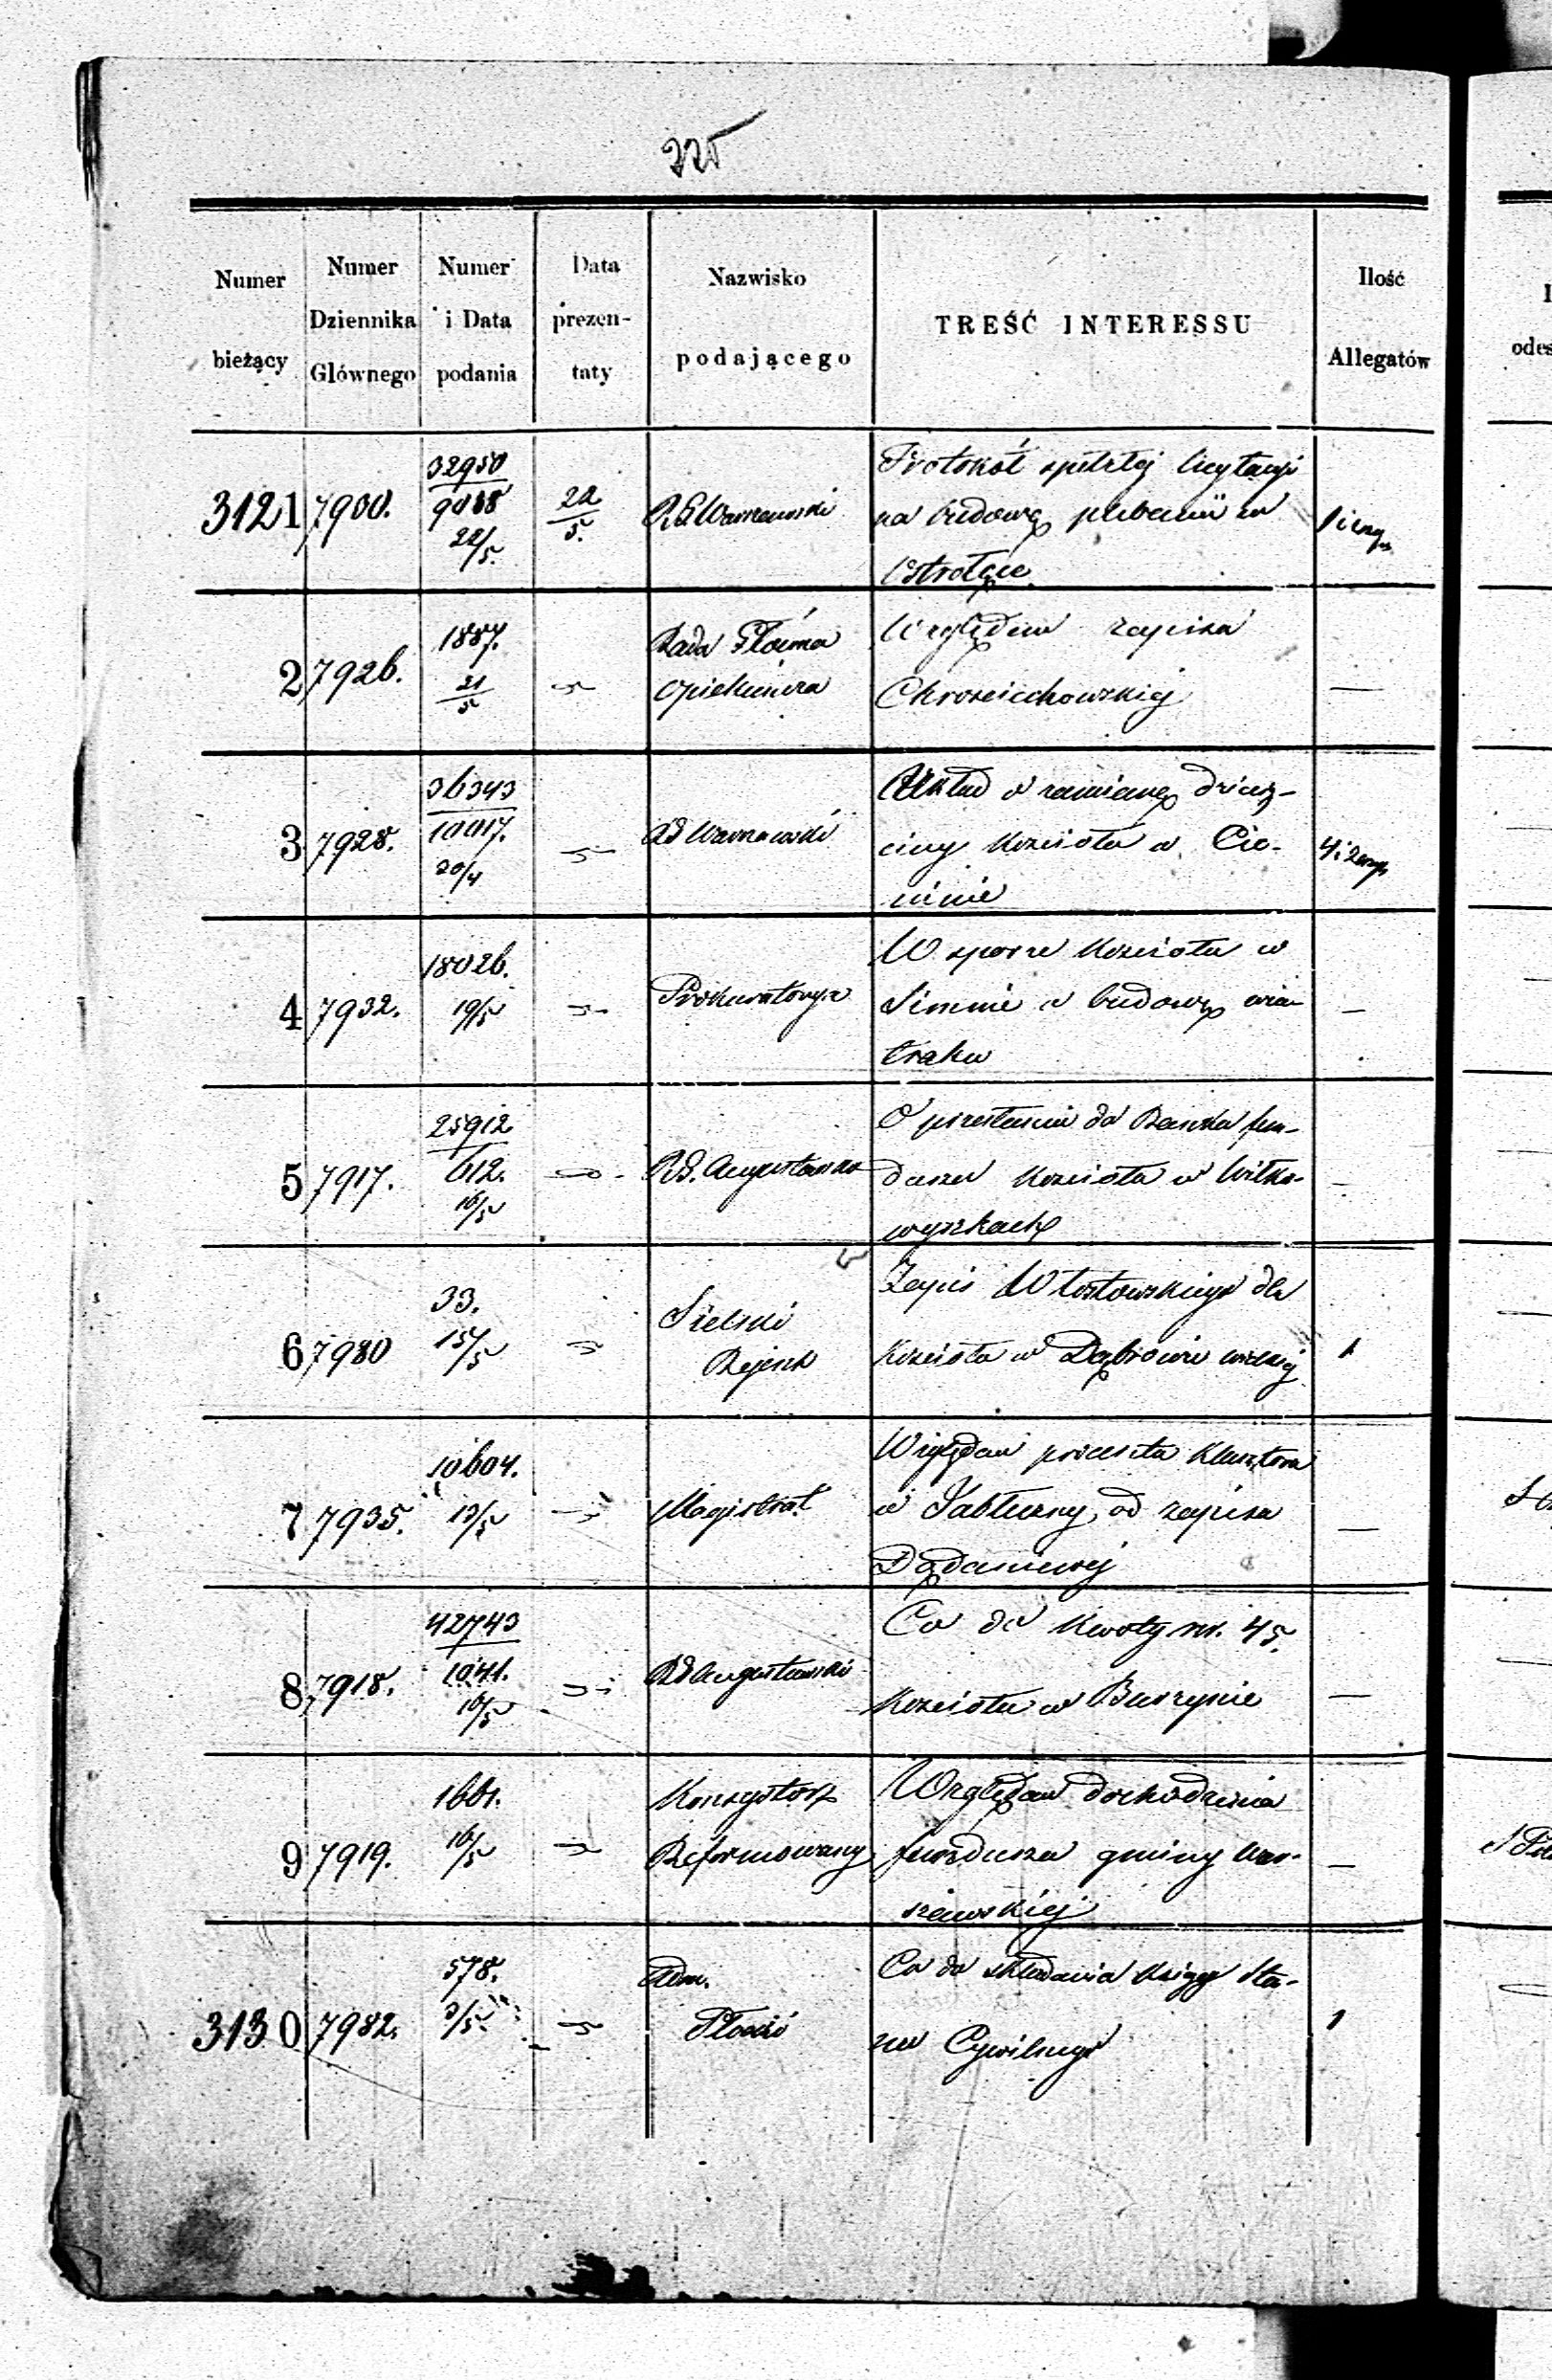 225
Numer bieżący
Numer Dziennika Głównego
Numer i Data podania
Data prezentaty
Nazwisko podającego
TREŚĆ INTERESSU
Ilość Allegatów
3121 7900. 32950 22/5. 22/5. R.G. Warszawski
Protokół spełzłej licytacyi
na budowę plebanii w
Ostrołęce
2 7926. 1887. 21/5 Rada Główna
Opiekuńcza
Względem zapisu
Chrościechowskiej
—
3 7928. 36343 10017. 20/4 RG Warszawski
Układ o zamianę dziesię-
ciny Kościoła w Cie-
ninie
4 7932. 18026. 19/5 Prokuratorya
W sporze Kościoła w
Simnie o budowę wia-
traku
—
5 7917. 25912 612. 16/5 R.G. Augustowski
O przesłaniu do Banku fun-
duszu Kościoła w Wiłko-
wyszkach
—
6 7980 33. 15/5 Sielski
Rejent
Zapis Włostowskiego dla
Kościoła w Dąbrowie wielkiej
1
7 7935. 10604. 13/5 Magistrat
Względem procentu Klasztoru
w od zapisu
—
8 7918. 42743 1041. 16/5 RG Augustowski
Co do Kwoty rs. 45.
Kościoła w
—
9 7919. 1661. 16/5 Konsystorz
Reformowany
Względem dochodzenia
funduszu gminy War-
szawskiej
—
3130 7982. 578. 3/5. Adm.
Płocki
Co do składania Księgi Sta-
nu Cywilnego
1